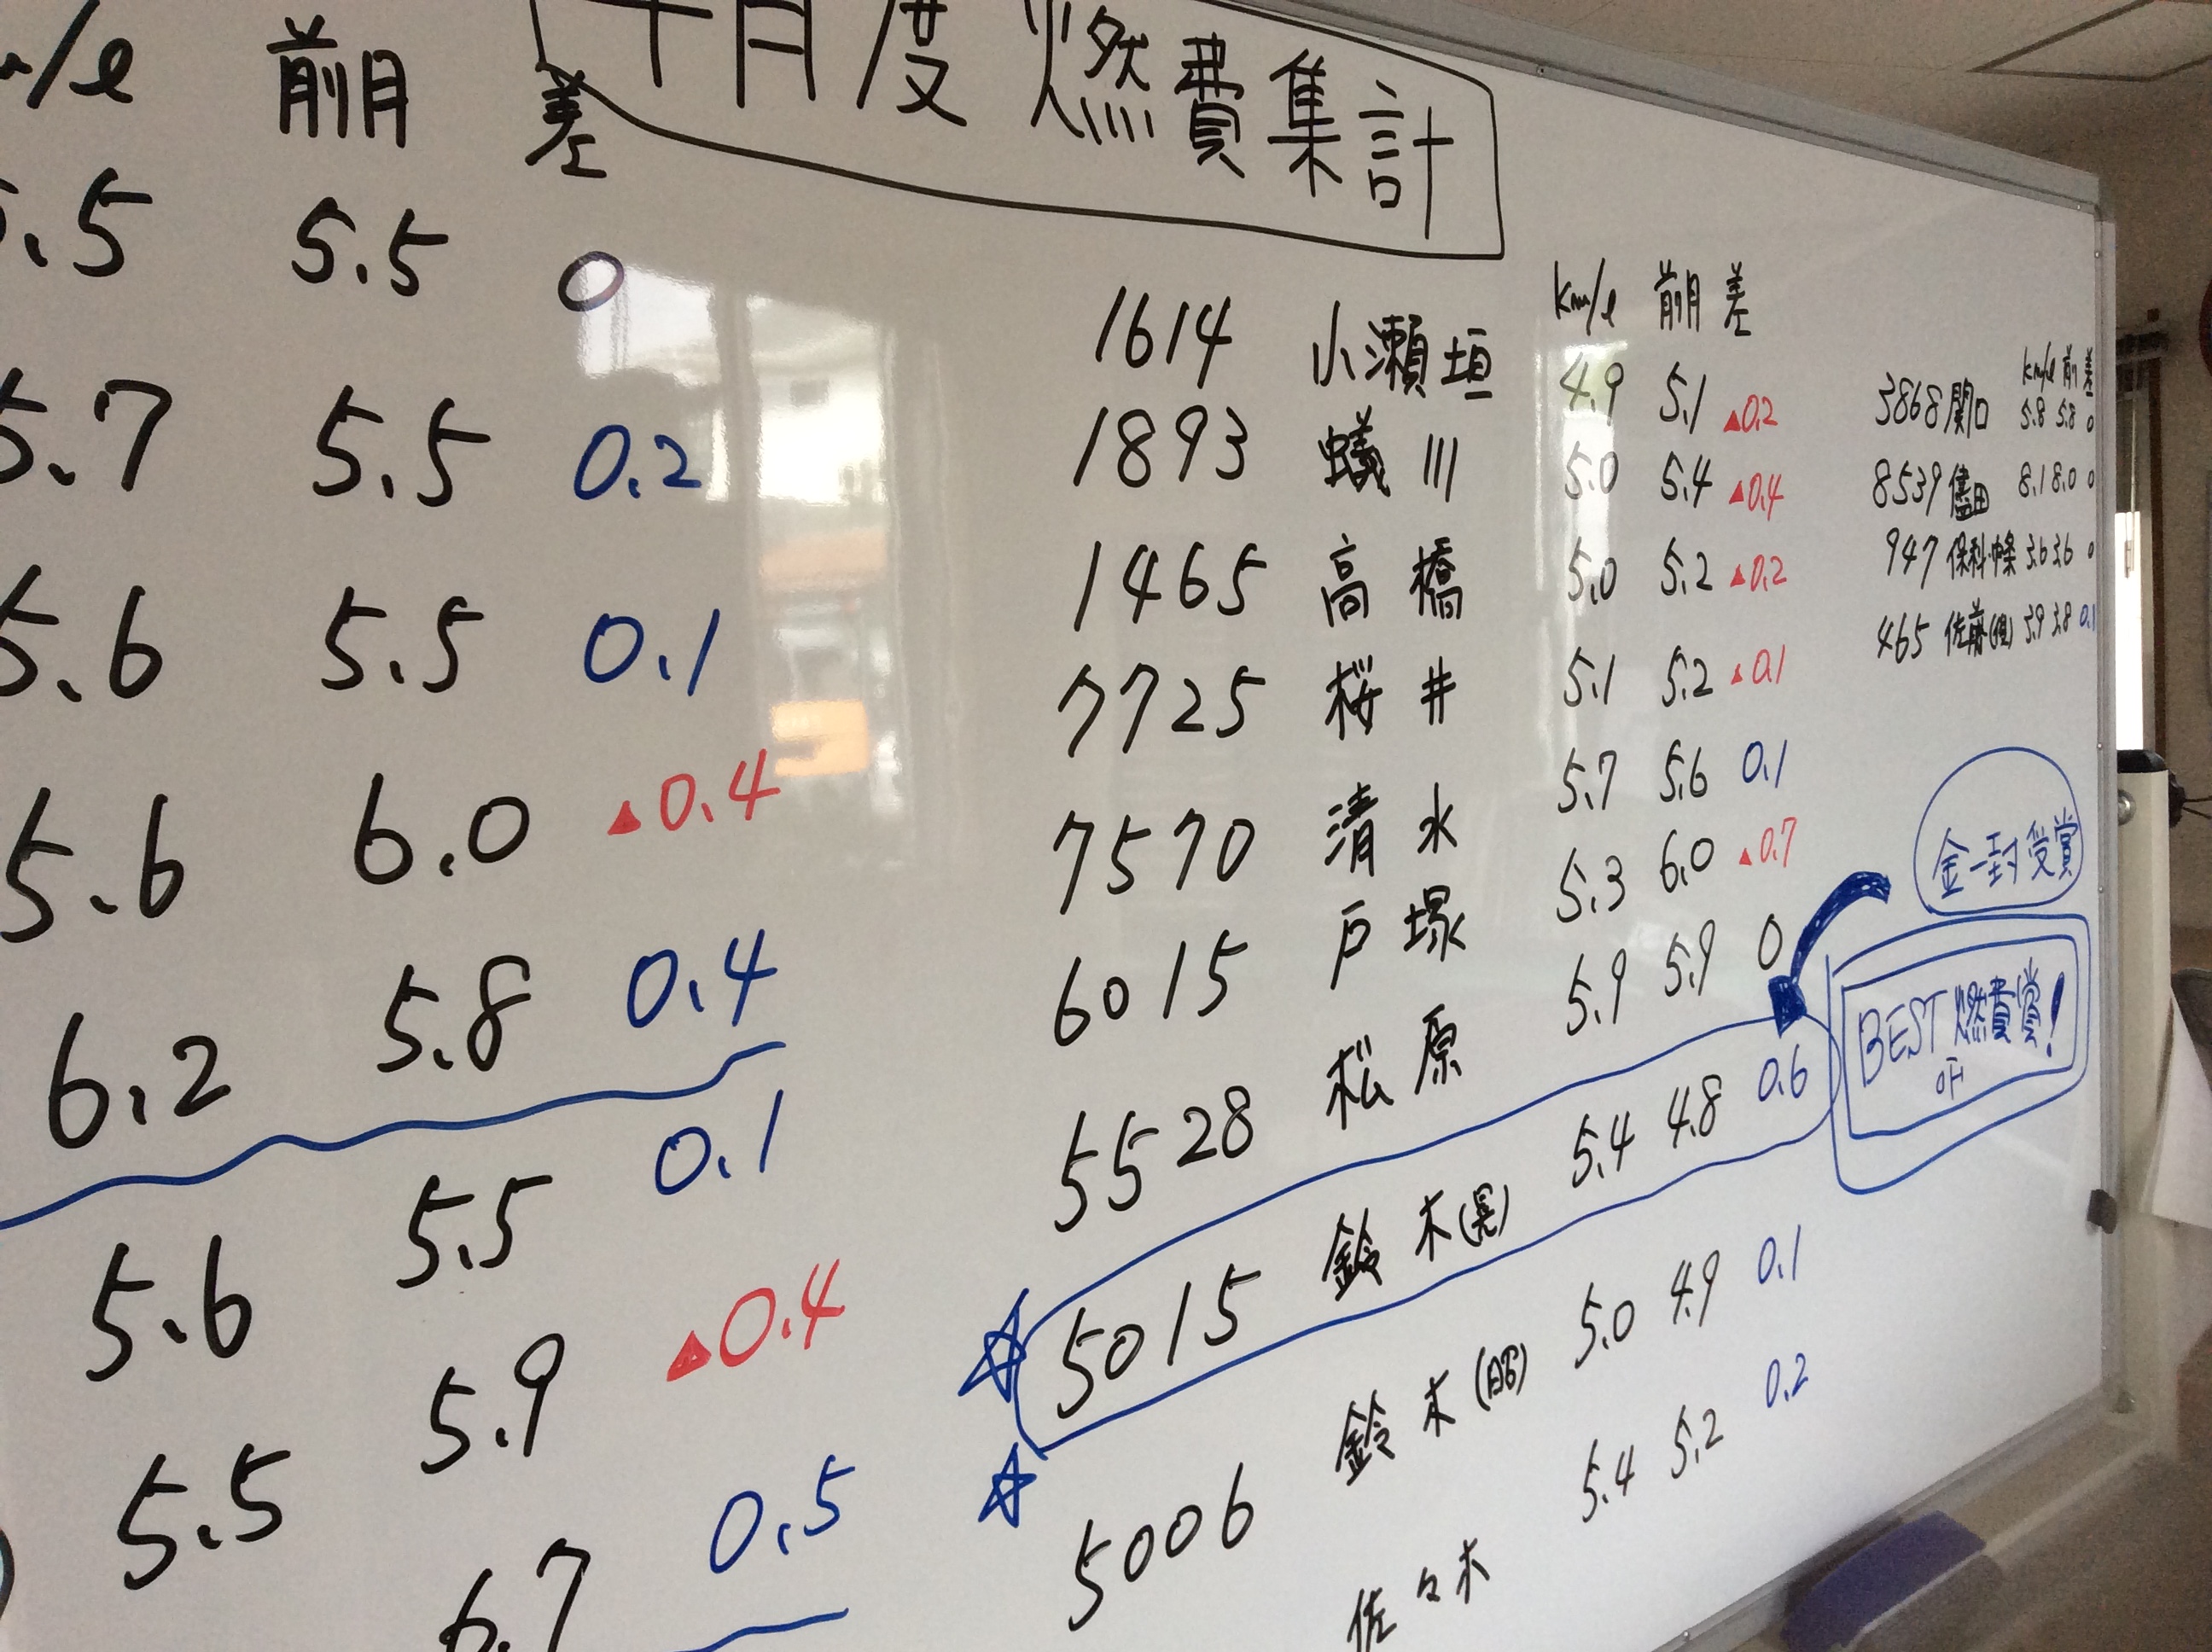 十月度 燃費集計
/ℓ 前月 差
.5 5.5 0
5.7 5.5 0.2
5.6 5.5 0.1
5.6 6.0 ▲0.4
6.2 5.8 0.4
5.6 5.5 0.1
5.5 5.9 ▲0.4
6.7 0.5
km/ℓ 前月 差
1614 小瀬垣 4.9 5.1 ▲0.2
1893 蟻川 5.0 5.4 ▲0.4
1465 高橋 5.0 5.2 ▲0.2
7725 桜井 5.1 5.2 ▲0.1
7570 清水 5.7 5.6 0.1
6015 戸塚 5.3 6.0 ▲0.7
5528 松原 5.9 5.9 0
☆ 5015 鈴木(晃) 5.4 4.8 0.6
☆ 5006 鈴木(昭) 5.0 4.9 0.1
佐々木 5.4 5.2 0.2
km/ℓ 前 差
3868 関口 5.8 5.8 0
8539 儘田 8.1 8.0 0
947 保科・中条 3.6 3.6 0
465 佐藤 3.9 3.8 0.1
金一封受賞
BEST燃費賞!